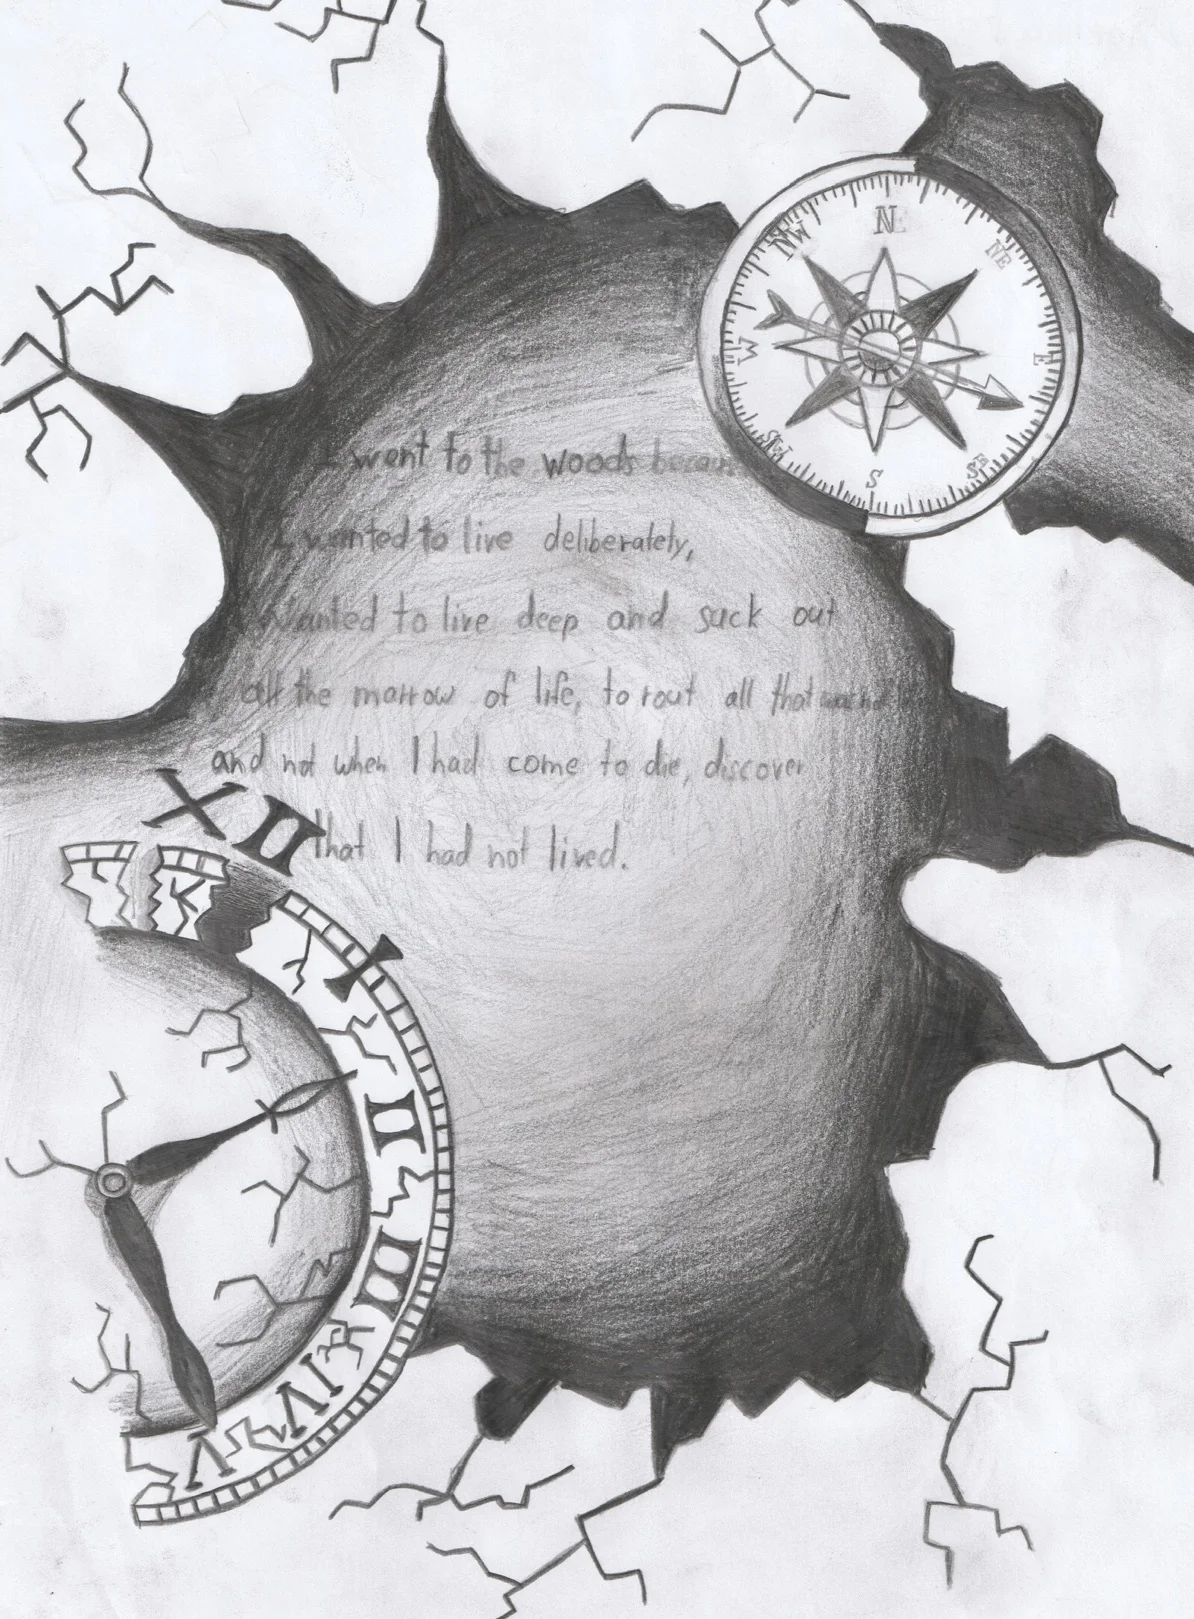 N
NE
NW
E
W
SW
SE
S
I went to the woods because
I wanted to live deliberately,
Wanted to live deep and suck out
all the marrow of life, to rout all that was not
and not when I had come to die, discover
that I had not lived.
XII
I
II
III
IV
V